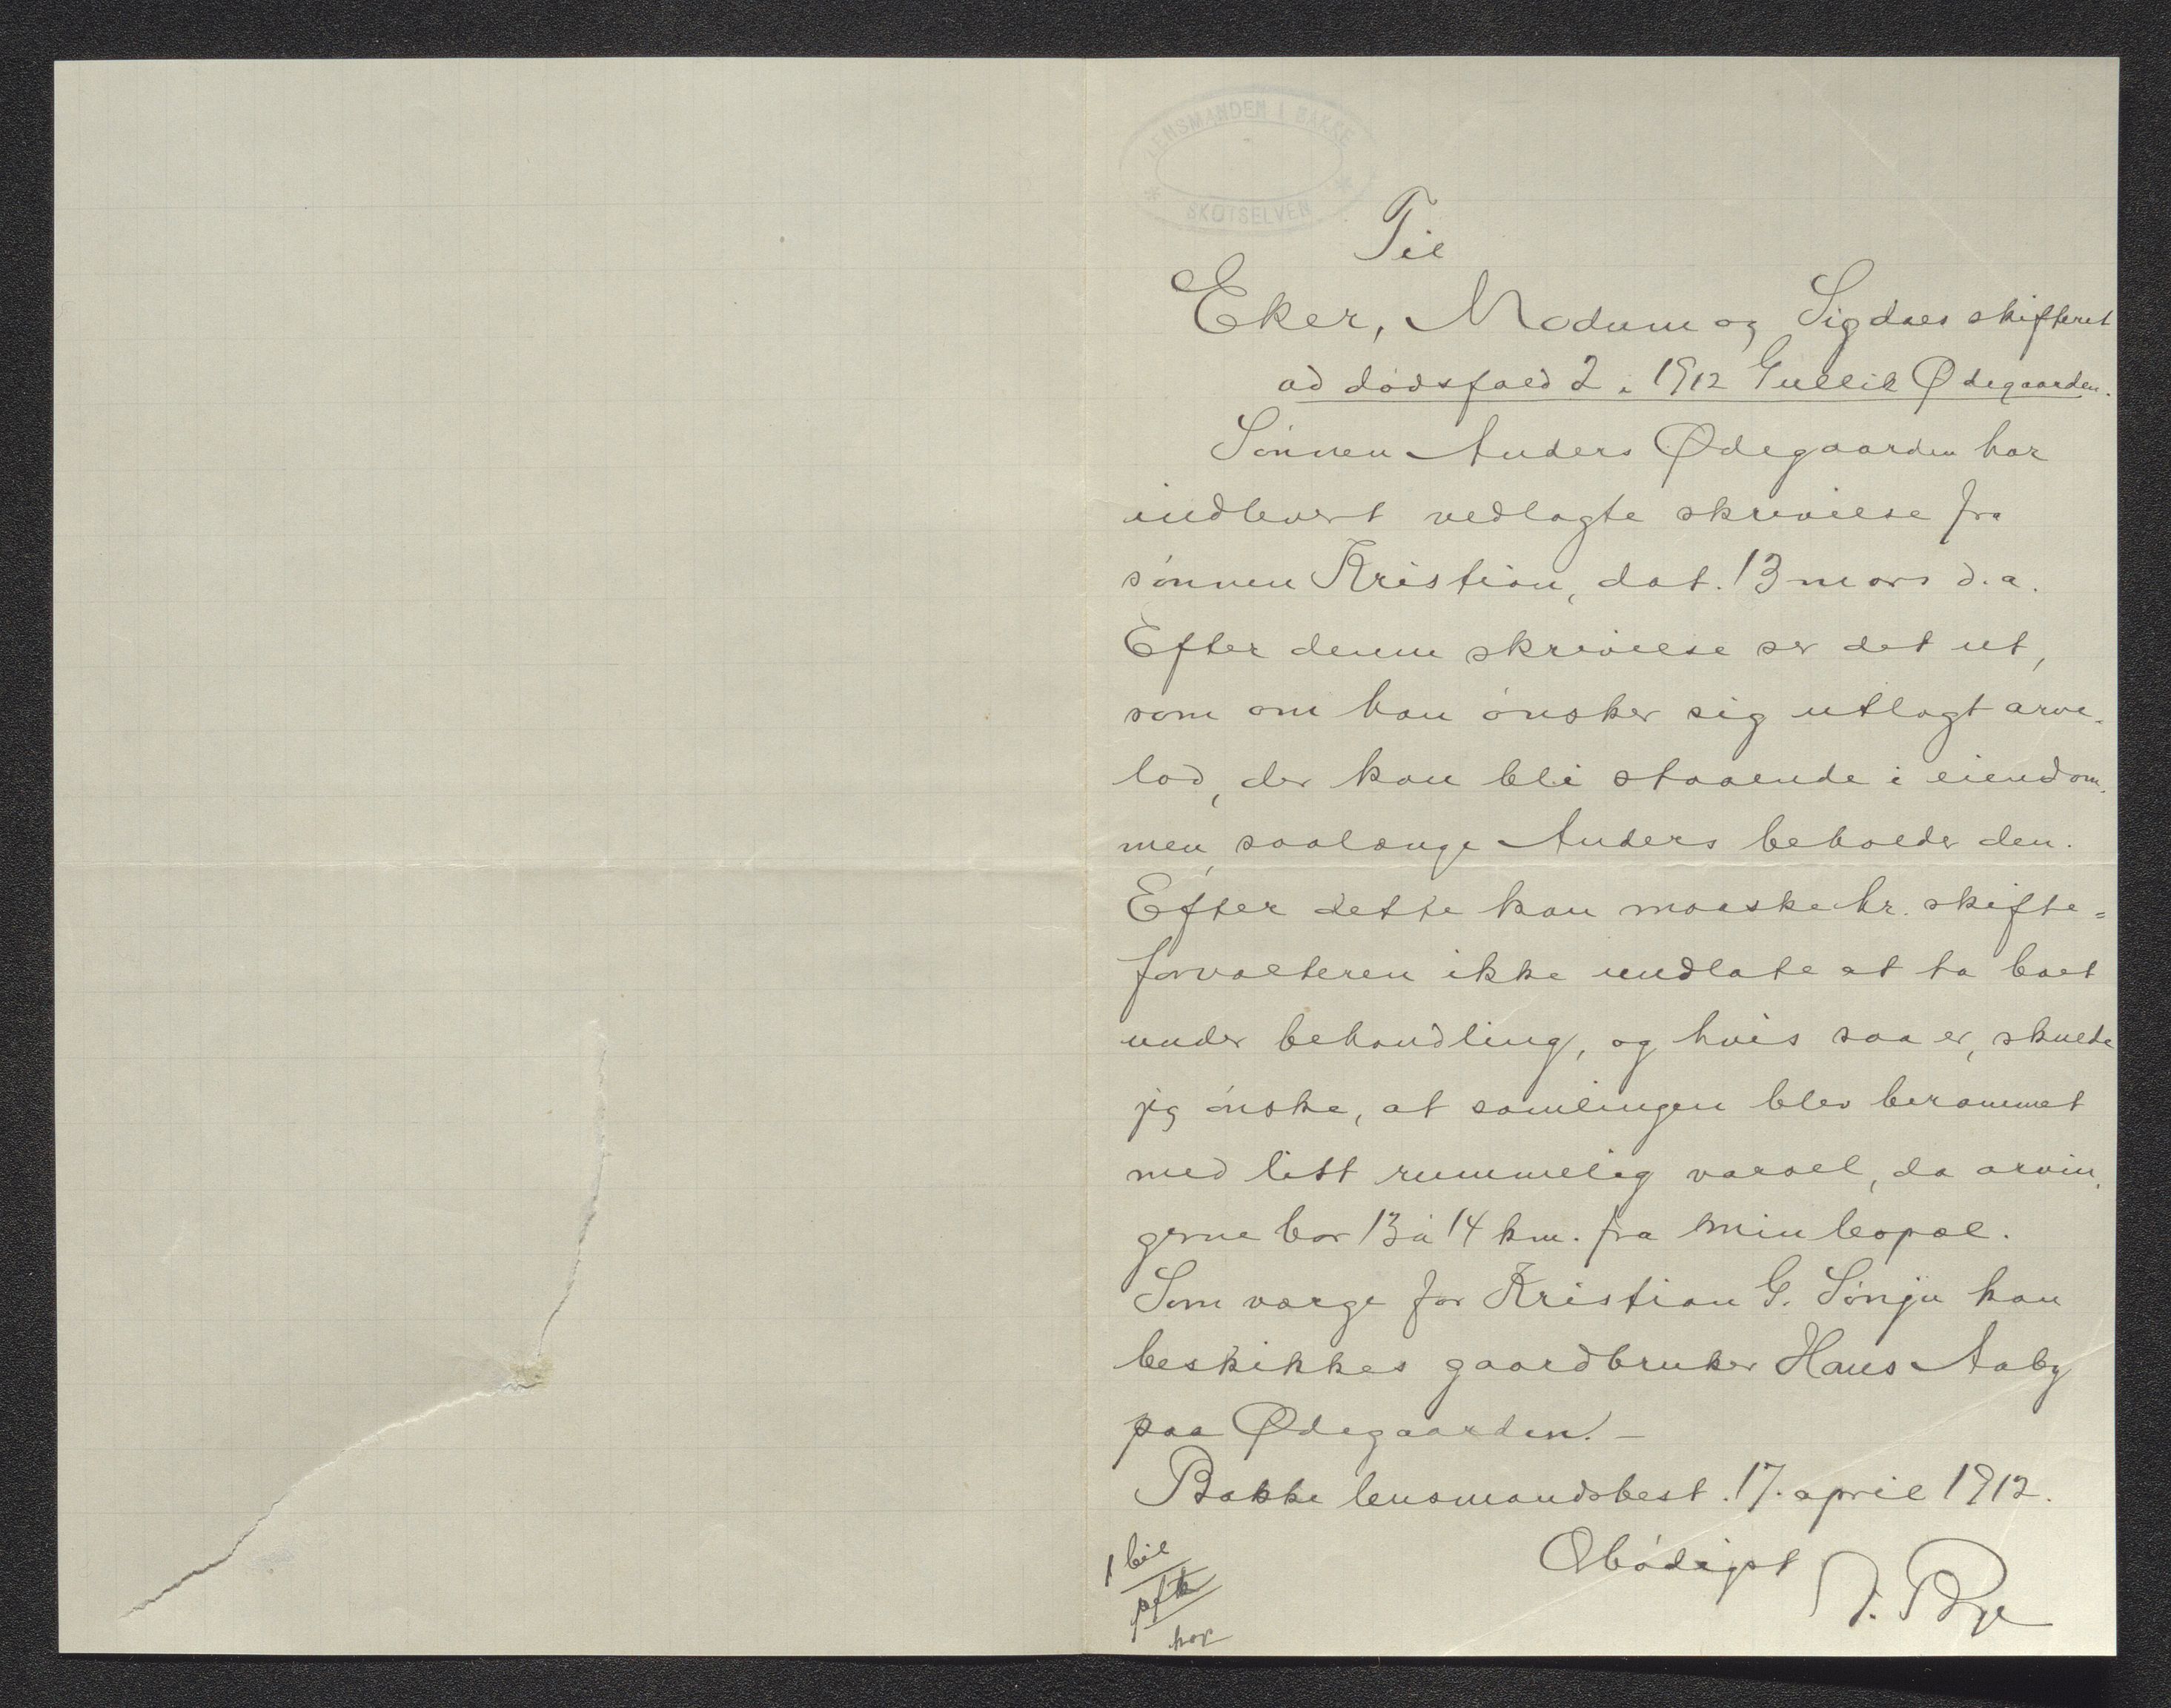 LENSMANDEN I BAKKE
* *
SKOTSELVEN
Til
Eker, Modum og Sigdals skifteret
ad dødsfald 2 i 1912 Gullik Ødegaarden.
Sönnen Anders Ødegaarden har
indlevert vedlagte skrivelse fra
sönnen Kristian, dat. 13 mars d.a.
Efter denne skrivelse ser det ut,
som om han önsker sig utlagt arve-
lod, der kan bli staaende i eiendom-
men, saalænge Anders beholder den.
Efter dette kan maaske hr. skifte=
forvalteren ikke undlate at ta boet
under behandling, og hvis saa er, skulde
jeg önske, at samlingen blev berammet
med litt rummelig varsel, da arvin-
gerne bor 13 à 14 km. fra min bopæl.
Som værge for Kristian G. Sönju kan
beskikkes gaardbruker Hans Aaby
paa Ødegaarden. –
Bakke lensmandsbest. 17. april 1912.
Ærbödigst
1 bil